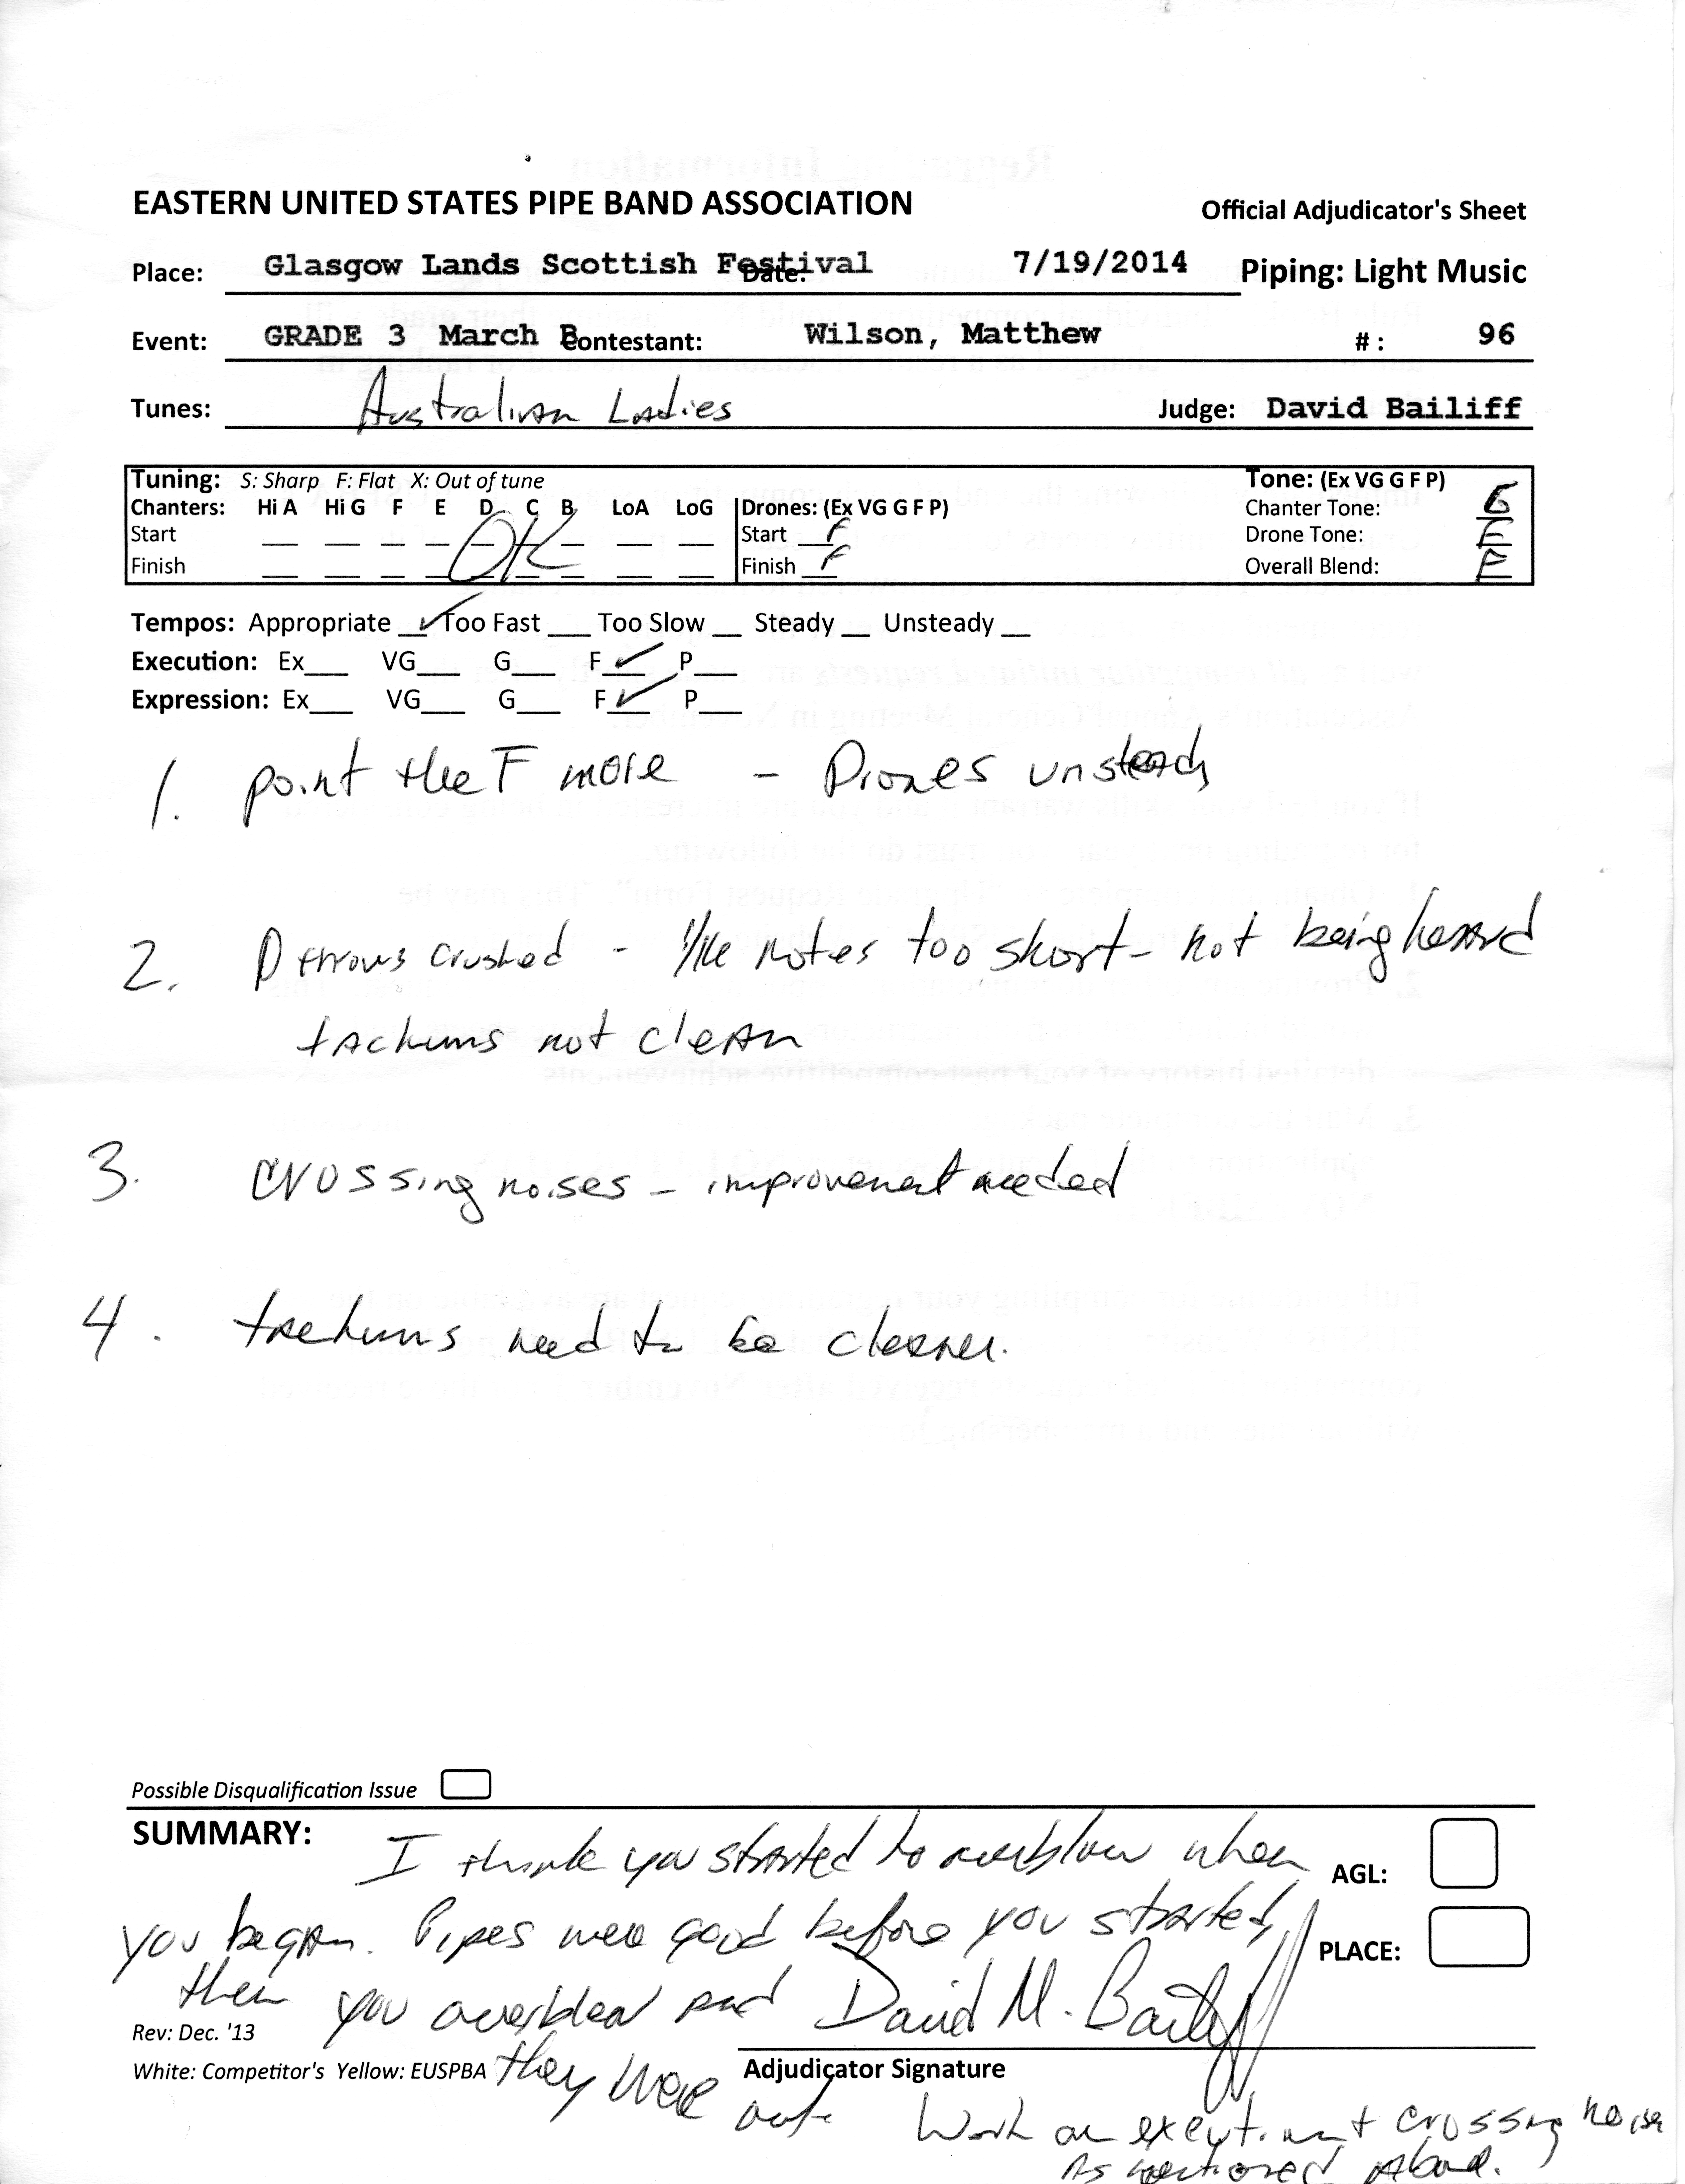 EASTERN UNITED STATES PIPE BAND ASSOCIATION Official Adjudicator's Sheet
Place: Glasgow Lands Scottish Festival Date: 7/19/2014 Piping: Light Music
Event: GRADE 3 March B Contestant: Wilson, Matthew #: 96
Tunes: Australian Ladies Judge: David Bailiff
Tuning: S: Sharp F: Flat X: Out of tune Tone: (Ex VG G F P)
Chanters: Hi A Hi G F E D C B LoA LoG Drones: (Ex VG G F P) Chanter Tone: G
Start __ __ __ __ __ __ __ __ __ OK Start F Drone Tone: F
Finish __ __ __ __ __ __ __ __ __ Finish F Overall Blend: F
Tempos: Appropriate ✓ Too Fast ___ Too Slow __ Steady __ Unsteady __
Execution: Ex___ VG___ G___ F ✓ P___
Expression: Ex___ VG___ G___ F ✓ P___
1. point the F more - Drones unsteady
2. D throws crushed - 1/16 notes too short - not being heard
tachums not clean
3. crossing noises - improvement needed
4. tachums need to be cleaner.
Possible Disqualification Issue
SUMMARY: I think you started to overblow when
AGL:
you began. Pipes were good before you started,
PLACE:
then you overblew and David M. Bailiff
Rev: Dec. '13
White: Competitor's Yellow: EUSPBA they were Adjudicator Signature
out. Work on execution + crossing noise
As mentioned above.